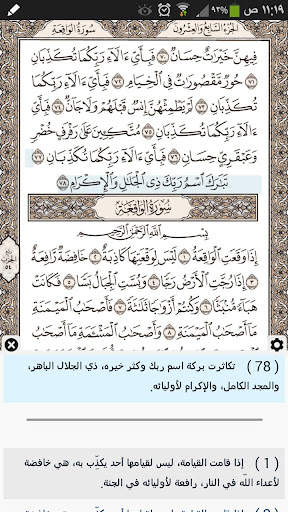 ١١:١٩ ص
الجزء السابع والعشرون
سورة الواقعة
فِيهِنَّ خَيْرَٰتٌ حِسَانٌ ٧٠ فَبِأَيِّ ءَالَآءِ رَبِّكُمَا تُكَذِّبَانِ
٧١ حُورٌ مَّقْصُورَٰتٌ فِي ٱلْخِيَامِ ٧٢ فَبِأَيِّ ءَالَآءِ رَبِّكُمَا
تُكَذِّبَانِ ٧٣ لَمْ يَطْمِثْهُنَّ إِنسٌ قَبْلَهُمْ وَلَا جَآنٌّ ٧٤
فَبِأَيِّ ءَالَآءِ رَبِّكُمَا تُكَذِّبَانِ ٧٥ مُتَّكِـِٔينَ عَلَىٰ رَفْرَفٍ خُضْرٍ
وَعَبْقَرِيٍّ حِسَانٍ ٧٦ فَبِأَيِّ ءَالَآءِ رَبِّكُمَا تُكَذِّبَانِ ٧٧
تَبَٰرَكَ ٱسْمُ رَبِّكَ ذِي ٱلْجَلَٰلِ وَٱلْإِكْرَامِ ٧٨
سُورَةُ الوَاقِعَةِ
بِسْمِ ٱللَّهِ ٱلرَّحْمَٰنِ ٱلرَّحِيمِ
إِذَا وَقَعَتِ ٱلْوَاقِعَةُ ١ لَيْسَ لِوَقْعَتِهَا كَاذِبَةٌ ٢ خَافِضَةٌ رَّافِعَةٌ
٣ إِذَا رُجَّتِ ٱلْأَرْضُ رَجًّا ٤ وَبُسَّتِ ٱلْجِبَالُ بَسًّا ٥ فَكَانَتْ
هَبَآءً مُّنۢبَثًّا ٦ وَكُنتُمْ أَزْوَٰجًا ثَلَٰثَةً ٧ فَأَصْحَٰبُ ٱلْمَيْمَنَةِ
مَآ أَصْحَٰبُ ٱلْمَيْمَنَةِ ٨ وَأَصْحَٰبُ ٱلْمَشْـَٔمَةِ مَآ أَصْحَٰبُ
الحزب
٥٤
(78) تكاثرت بركة اسم ربك وكثر خيره، ذي الجلال الباهر،
والمجد الكامل، والإكرام لأوليائه.
(1) إذا قامت القيامة، ليس لقيامها أحد يكذّب به، هي خافضة
لأعداء الله في النار، رافعة لأوليائه في الجنة.
(2) إذا قامت القيامة، ليس لقيامها أحد يكذّب به، هي خافضة